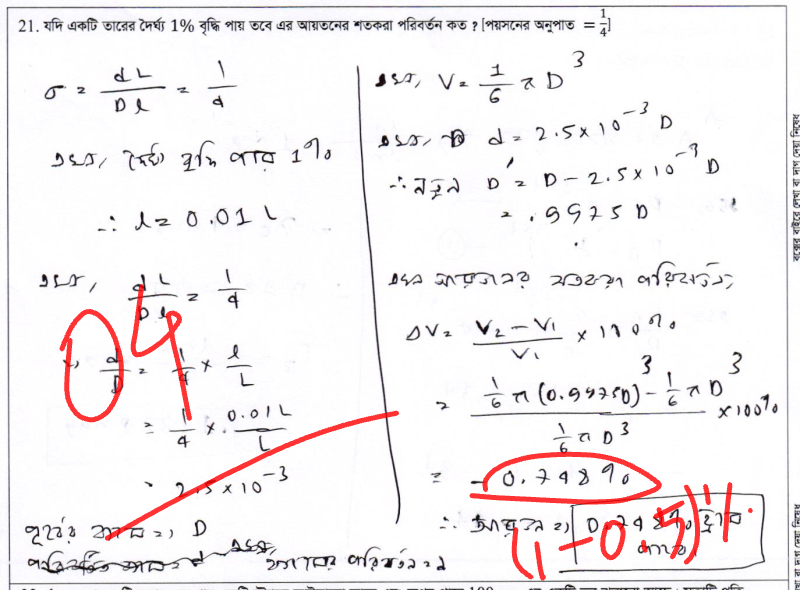 21. যদি একটি তারের দৈর্ঘ্য 1% বৃদ্ধি পায় তবে এর আয়তনের শতকরা পরিবর্তন কত ? [পয়সনের অনুপাত = 1/4]
σ = dL/Dl = 1/4
এখন, দৈর্ঘ্য বৃদ্ধি পায় 1%
∴ l = 0.01 L
এখন, dL/Dl = 1/4
d/D = 1/4 × l/L
= 1/4 × 0.01L/L
= 2.5×10⁻³
পূর্বের ব্যাস = D
04
এখন, V = 1/6 π D³
এখন, d = 2.5×10⁻³ D
∴ নতুন D' = D − 2.5×10⁻³ D
= .9975 D
এখন আয়তনের শতকরা পরিবর্তন,
ΔV = (V₂ − V₁)/V₁ × 100%
= (1/6 π (0.9975D)³ − 1/6 π D³)/(1/6 π D³) × 100%
= − 0.748%
∴ আয়তন 0.748% হ্রাস পাবে
(1−0.5)%